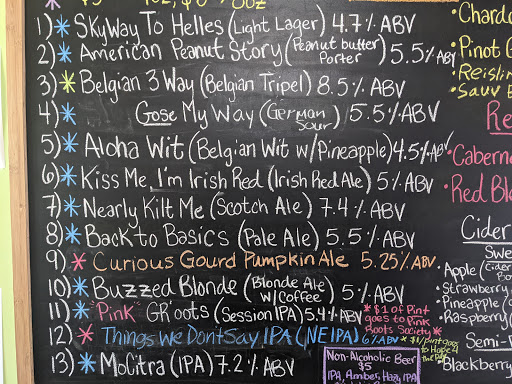 1)* SkyWay To Helles (Light Lager) 4.7% ABV
2)* American Peanut Story (Peanut butter Porter) 5.5%
3)* Belgian 3 Way (Belgian Tripel) 8.5% ABV
4)* Gose My Way (German Sour) 5.5% ABV
5)* Aloha Wit (Belgian Wit w/Pineapple) 4.5% ABV
6)* Kiss Me, I'm Irish Red (Irish Red Ale) 5% ABV
7)* Nearly Kilt Me (Scotch Ale) 7.4% ABV
8)* Back to Basics (Pale Ale) 5.5% ABV
9)* Curious Gourd Pumpkin Ale 5.25% ABV
10)* Buzzed Blonde (Blonde Ale w/Coffee) 5% ABV
11)* "Pink" GR'oots (Session IPA) 5.4% ABV
* $1 of Pint
goes to Pink
Roots Society *
12)* Things We Dont Say IPA (NEIPA) 6% ABV
* $1/pint goes
to Hope 4
13)* MoCitra (IPA) 7.2% ABV
Non-Alcoholic Beer
$5
IPA, Amber, Hazy IPA
Chard
• Pinot G
• Reislin
• Sauv B
Re
• Caberne
• Red Bl
Cider
Swe
• Apple (Cider
• Strawberry
• Pineapple (
• Raspberry (
Semi-
• Blackberry